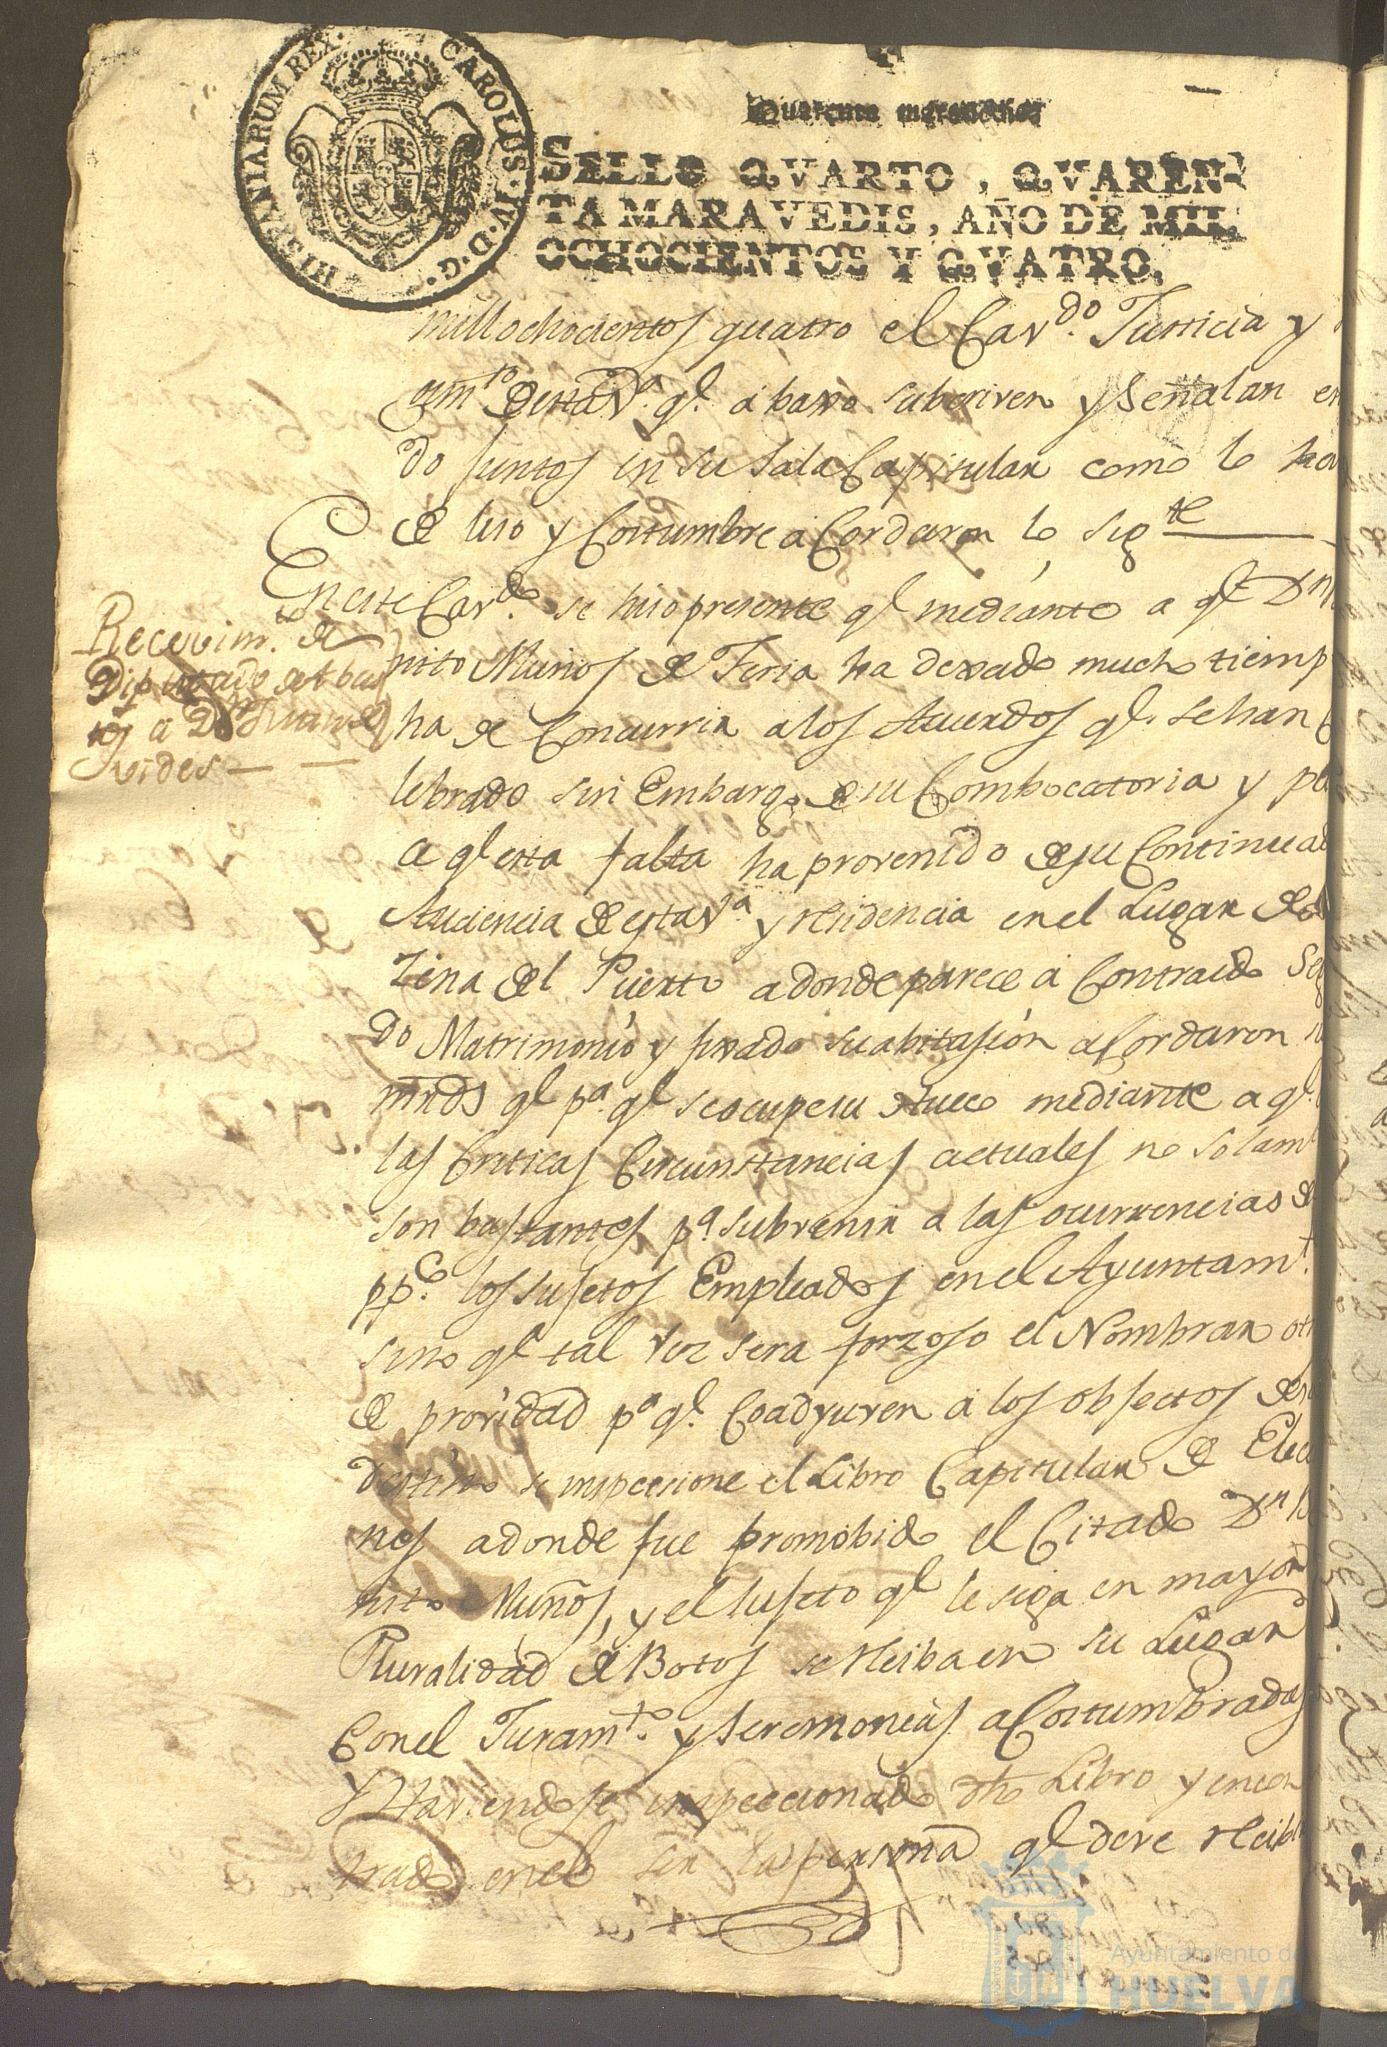 HISPANIARUM REX. CAROLUS IV. D. G.
Quarenta maravedis
SELLO QVARTO, QVAREN-
TA MARAVEDIS, AÑO DE MIL
OCHOCIENTOS Y QVATRO.
mill ochocientos quatro el Cavdo. Justicia y
Desta Va. ql. abaxo subcriven y señalan
do Juntos en su Sala Capitular como lo han
de uso y Costumbre aCordaron lo sigte
En este Cavdo. se hiso presente ql mediante a ql Dn
nito Muños de Feria ha dexado mucho tiemp
ha de Concurrir alos Acuerdos ql. sehan
lebrado sin Embargo de su Combocatoria y
a ql esta falta ha provenido de su Continuad
Auciencia de esta Va y residencia en el Lugar de
zina del Puerto adonde parece á Contraido Seg
do Matrimonio y fixado su abitasión aCordaron
mrds ql pa. ql se ocupe su Hueco mediante a ql.
las Criticas Circunstancias actuales no solamt
son bastantes pa subvenir a las ocurrencias de
ppco. los sujetos Empleados en el Ayuntamt.
sino ql tal vez sera forzoso el Nombrar ot
de providad pa ql. Coadyuven a los objectos
destino se inspeccione el Libro Capitular de Elec
nes adonde fue promobido el Citado Dn B
nito Muños, y el sujeto ql le siga en mayor
Pluralidad de Botos se reciba en su Lugar
Con el Juramto. y seremonias aCostumbradas
y Haviendose inspeccionado dho Libro y encon
trado en el ser la persona ql deve recibi
Recevimto. de
Diputado de Abas
tos a Dn Juan de
vides
Ayuntamiento de
HUELVA